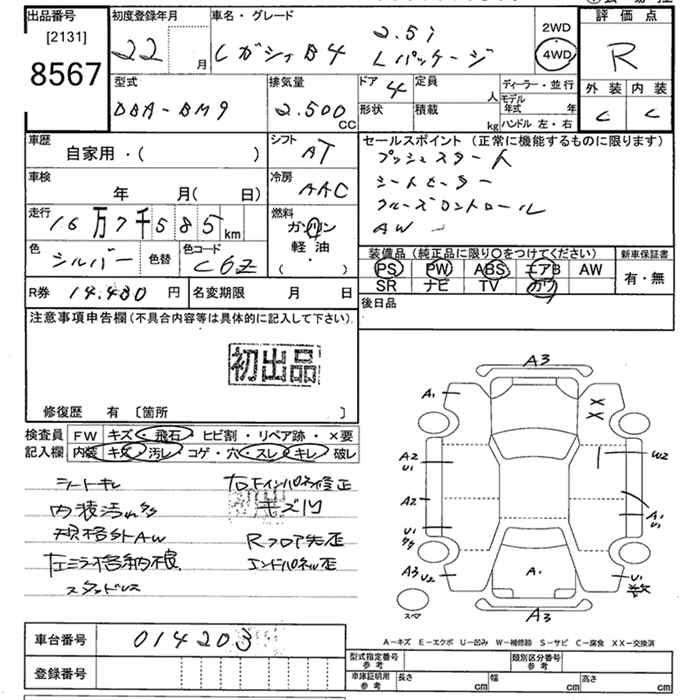 出品番号
[2131]
8567
初度登録年月
22 月
車名・グレード
レガシィB4 2.5i
Lパッケージ
2WD
4WD
評価点
R
外装 内装
C C
型式
DBA-BM9
排気量
2.500 CC
ドア 4
定員 人
形状
積載 kg
ディーラー・並行
モデル年式 年
ハンドル 左・右
車歴
自家用・( )
シフト
AT
車検
年 月(日)
冷房
AAC
走行
16万7千585km
燃料
ガソリン
軽油
( )
色
シルバー
色替
色コード
C6Z
R券 14.480 円
名変期限 月 日
セールスポイント(正常に機能するものに限ります)
プッシュスタート
シートヒーター
クルーズコントロール
AW
装備品(純正品に限り〇をつけてください)
PS PW ABS エアB AW
SR ナビ TV カワ
新車保証書
有・無
後日品
注意事項申告欄(不具合内容等は具体的に記入して下さい)
初出品
修復歴 有 〔箇所 〕
検査員記入欄
FW キズ・飛石・ヒビ割・リペア跡・×要
内装 キズ・汚レ・コゲ・穴・スレ・キレ・破レ
シートキレ
内装汚れ多
規格外AW
左ミラー格納不良
スタッドレス
右Fインパネ修正
キズ凹
Rフロア先歪
エンドパネル歪
A3
A1
XX
A2
U1
W2
A2
A1
U1
U1
A3
U2
A・
U1
A3
スペア
A-キズ E-エクボ U-凹み W-補修跡 S-サビ C-腐食 XX-交換済
車台番号
014203
登録番号
型式指定番号
参考
類別区分番号
参考
車庫証明用
参考
長さ cm
幅 cm
高さ cm